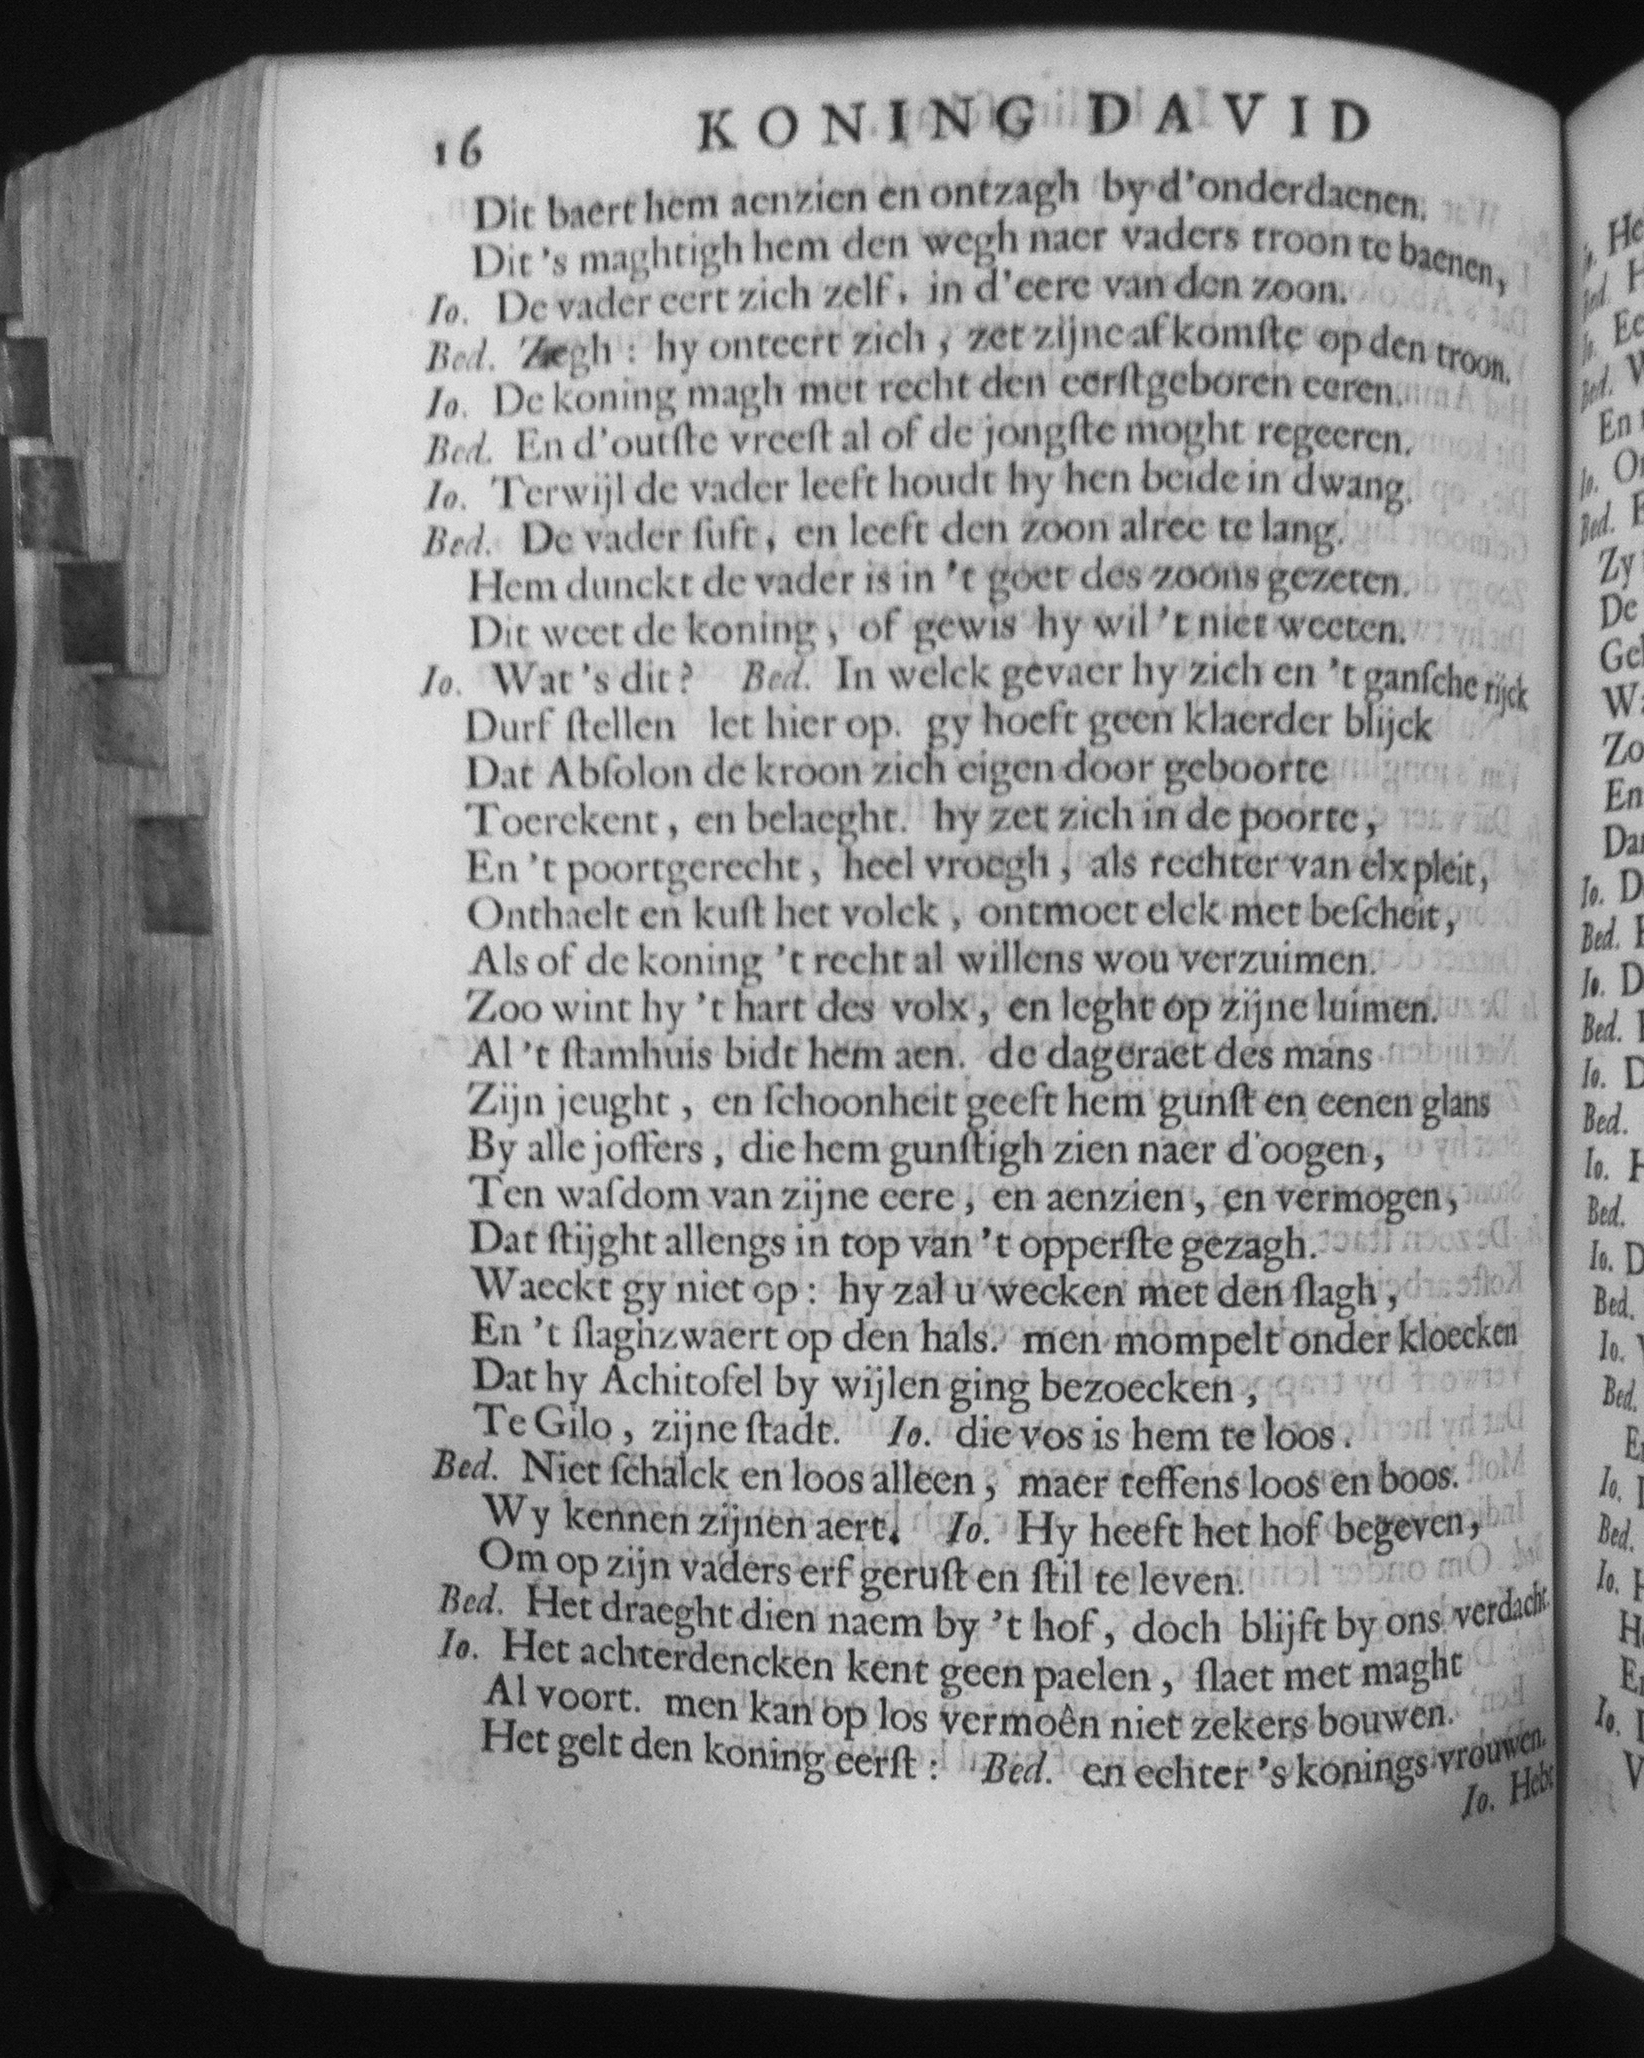 16 KONING DAVID
Dit baert hem aenzien en ontzagh by d'onderdaenen.
Dit 's maghtigh hem den wegh naer vaders troon te baenen,
Io. De vader eert zich zelf, in d'eere van den zoon.
Bed. Zegh : hy onteert zich, zet zijne afkomſte op den troon.
Io. De koning magh met recht den eerſtgeboren eeren.
Bed. En d'outſte vreeſt al of de jongſte moght regeeren.
Io. Terwijl de vader leeft houdt hy hen beide in dwang.
Bed. De vader ſuft, en leeft den zoon alree te lang.
Hem dunckt de vader is in 't goet des zoons gezeten.
Dit weet de koning, of gewis hy wil 't niet weeten.
Io. Wat 's dit? Bed. In welck gevaer hy zich en 't ganſche rijck
Durf ſtellen let hier op. gy hoeft geen klaerder blijck
Dat Abſolon de kroon zich eigen door geboorte
Toerekent, en belaeght. hy zet zich in de poorte,
En 't poortgerecht, heel vroegh, als rechter van elx pleit,
Onthaelt en kuſt het volck, ontmoet elck met beſcheit,
Als of de koning 't recht al willens wou verzuimen.
Zoo wint hy 't hart des volx, en leght op zijne luimen.
Al 't ſtamhuis bidt hem aen. de dageraet des mans
Zijn jeught, en ſchoonheit geeft hem gunſt en eenen glans
By alle joffers, die hem gunſtigh zien naer d'oogen,
Ten waſdom van zijne eere, en aenzien, en vermogen,
Dat ſtijght allengs in top van 't opperſte gezagh.
Waeckt gy niet op: hy zal u wecken met den ſlagh,
En 't ſlaghzwaert op den hals. men mompelt onder kloecken
Dat hy Achitofel by wijlen ging bezoecken,
Te Gilo, zijne ſtadt. Io. die vos is hem te loos.
Bed. Niet ſchalck en loos alleen, maer teffens loos en boos.
Wy kennen zijnen aert. Io. Hy heeft het hof begeven,
Om op zijn vaders erf geruſt en ſtil te leven.
Bed. Het draeght dien naem by 't hof, doch blijft by ons verdacht.
Io. Het achterdencken kent geen paelen, ſlaet met maght
Al voort. men kan op los vermoên niet zekers bouwen.
Het gelt den koning eerſt: Bed. en echter 's konings vrouwen.
Io. Hebt